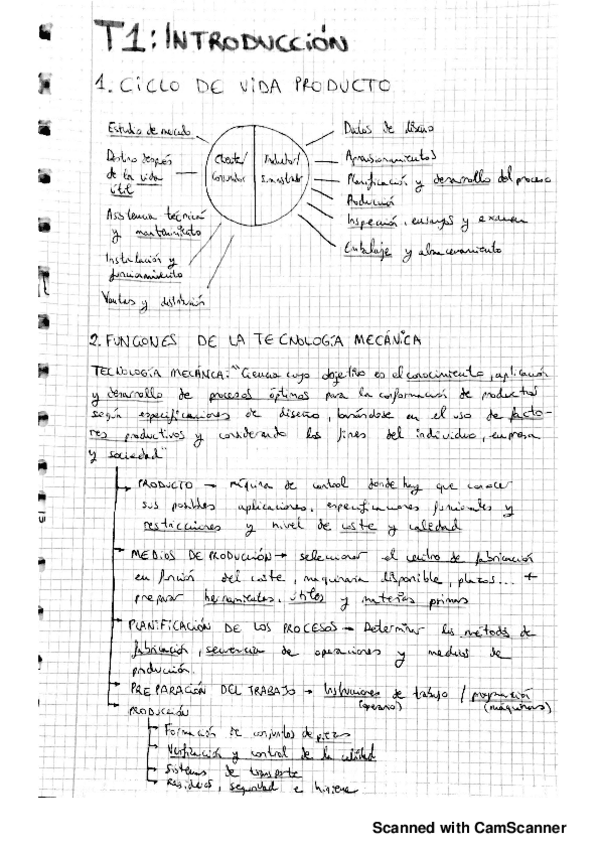 T1: INTRODUCCIÓN
1. CICLO DE VIDA PRODUCTO
Estudio de mercado
Destino después
de la vida
útil
Asistencia técnica
y mantenimiento
Instalación y
funcionamiento
Ventas y distribución
Cliente/
Consumidor
Productor/
Suministrador
Datos de diseño
Aprovisionamientos
Planificación y desarrollo del proceso
Producción
Inspección, ensayos y examen
Embalaje y almacenamiento
2. FUNCIONES DE LA TECNOLOGÍA MECÁNICA
TECNOLOGÍA MECÁNICA: "Ciencia cuyo objetivo es el conocimiento, aplicación
y desarrollo de procesos óptimos para la conformación de productos
según especificaciones de diseño, basándose en el uso de facto-
res productivos y considerando los fines del individuo, empresa
y sociedad"
PRODUCTO → máquina de control donde hay que conocer
sus posibles aplicaciones, especificaciones funcionales y
restricciones y nivel de coste y calidad
MEDIOS DE PRODUCCIÓN → seleccionar el centro de fabricación
en función del coste, maquinaria disponible, plazos... +
preparar herramientas, útiles y materias primas
PLANIFICACIÓN DE LOS PROCESOS → Determinar los métodos de
fabricación, secuencia de operaciones y medios de
producción.
PREPARACIÓN DEL TRABAJO → Instrucciones de trabajo / programación
(operario) (máquinas)
PRODUCCIÓN
Formación de conjuntos de piezas
Verificación y control de la calidad
Sistemas de transporte
Residuos, seguridad e higiene
Scanned with CamScanner